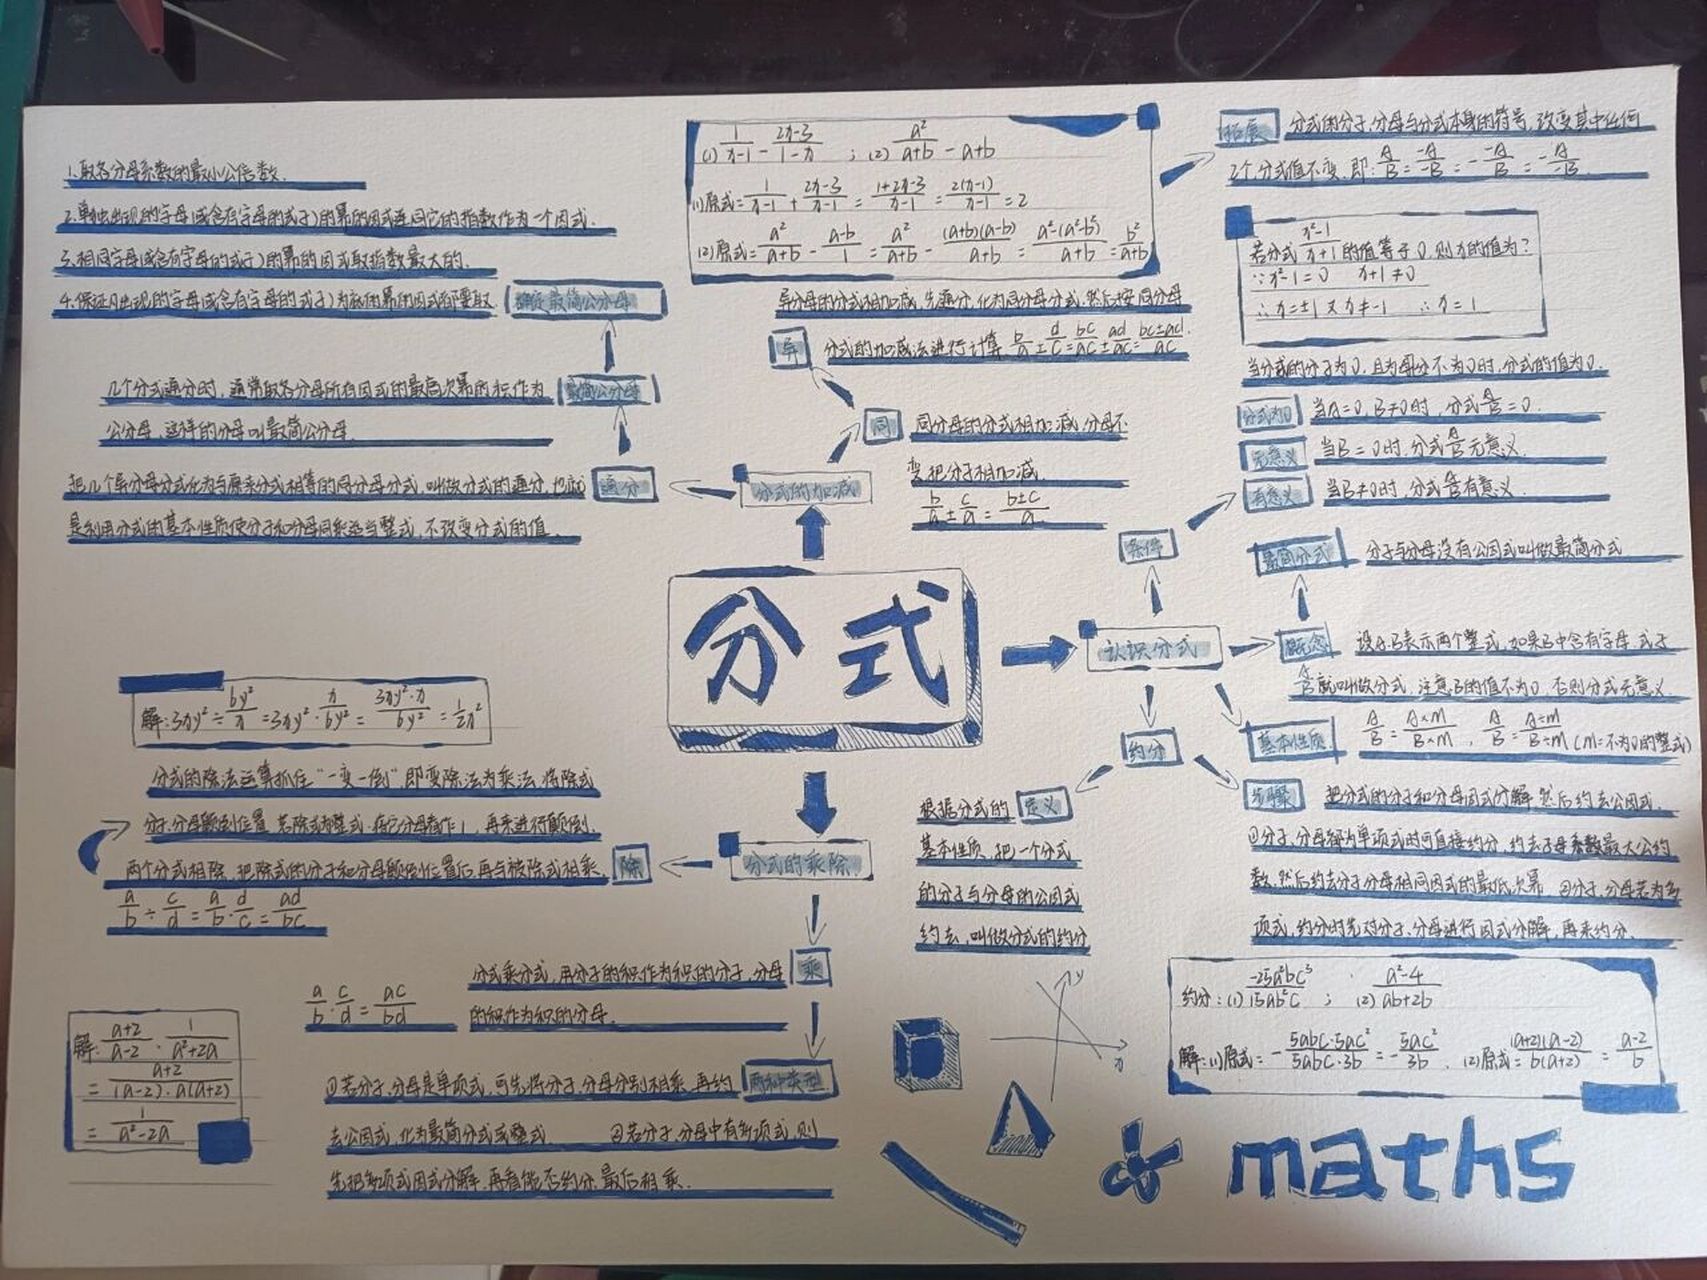 1.取各分母系数的最小公倍数.
2.单独出现的字母(或含有字母的式子)的幂的因式连同它的指数作为一个因式.
3.相同字母(或含有字母的式子)的幂的因式取指数最大的.
4.保证凡出现的字母(或含有字母的式子)为底的幂的因式都要取
确定最简公分母
几个分式通分时,通常取各分母所有因式的最高次幂的积作为
公分母,这样的分母叫最简公分母.
最简公分母
把几个异分母分式化为与原来分式相等的同分母分式,叫做分式的通分,也就
是利用分式的基本性质使分子和分母同乘适当整式,不改变分式的值.
通分
分式的加减
(1) 1/(x-1) - (2x-3)/(1-x) ; (2) a²/(a+b) - a+b
(1)原式= 1/(x-1) + (2x-3)/(x-1) = (1+2x-3)/(x-1) = 2(x-1)/(x-1) = 2
(2)原式= a²/(a+b) - (a-b)/1 = a²/(a+b) - (a+b)(a-b)/(a+b) = a²-(a²-b²)/(a+b) = b²/(a+b)
异分母的分式相加减,先通分,化为同分母分式,然后按同分母
异
分式的加减法进行计算 b/a ± d/c = bc/ac ± ad/ac = (bc±ad)/ac.
同
同分母的分式相加减,分母不
变,把分子相加减
b/a ± c/a = (b±c)/a
拓展
分式的分子,分母与分式本身的符号,改变其中任何
2个,分式值不变,即: A/B = -A/-B = - -A/B = - A/-B
若分式 (x²-1)/(x+1) 的值等于0,则x的值为?
∵x²-1=0 x+1≠0
∴x=±1 又x≠-1 ∴x=1
当分式的分子为0,且分母不为0时,分式的值为0.
分式为0
当A=0,B≠0时,分式A/B=0.
无意义
当B=0时,分式A/B无意义.
有意义
当B≠0时,分式A/B有意义.
条件
最简分式
分子与分母没有公因式叫做最简分式
分式
认识分式
概念
设A.B表示两个整式,如果B中含有字母,式子
A/B就叫做分式,注意B的值不为0,否则分式无意义.
基本性质
A/B = A×M/B×M , A/B = A÷M/B÷M (M=不为0的整式)
约分
根据分式的
定义
基本性质,把一个分式
的分子与分母的公因式
约去,叫做分式的约分
步骤
把分式的分子和分母因式分解,然后约去公因式.
①分子,分母都为单项式时可直接约分,约去子母系数最大公约
数,然后约去分子分母相同因式的最低次幂 ②分子,分母若为多
项式,约分时先对分子,分母进行因式分解,再来约分.
约分:(1) -25a²bc³/15ab²c ; (2) (a²-4)/(ab+2b)
解:(1)原式= - 5abc·5ac²/5abc·3b = - 5ac²/3b . (2)原式= (a+2)(a-2)/b(a+2) = (a-2)/b
解:3xy²÷6y²/x =3xy²·x/6y² = 3xy²·x/6y² = 1/2x²
分式的除法运算抓住“一变一倒”即变除法为乘法,将除式
分子,分母颠倒位置,若除式为整式,将它分母看作1,再来进行颠倒.
两个分式相除,把除式的分子和分母颠倒位置后,再与被除式相乘.
除
a/b ÷ c/d = a/b · d/c = ad/bc
分式的乘除
乘
分式乘分式,用分子的积作为积的分子,分母
的积作为积的分母.
a/b · c/d = ac/bd
两种类型
①若分子,分母是单项式,可先将分子,分母分别相乘,再约
去公因式,化为最简分式或整式. ②若分子,分母中有多项式,则
先把多项式因式分解,再看能否约分,最后相乘.
解: (a+2)/(a-2) · 1/(a²+2a)
= (a+2)/(a-2)·a(a+2)
= 1/(a²-2a)
y
x
maths